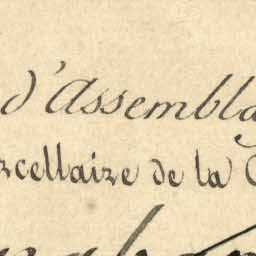 d'Assembla
rcellaire de la C